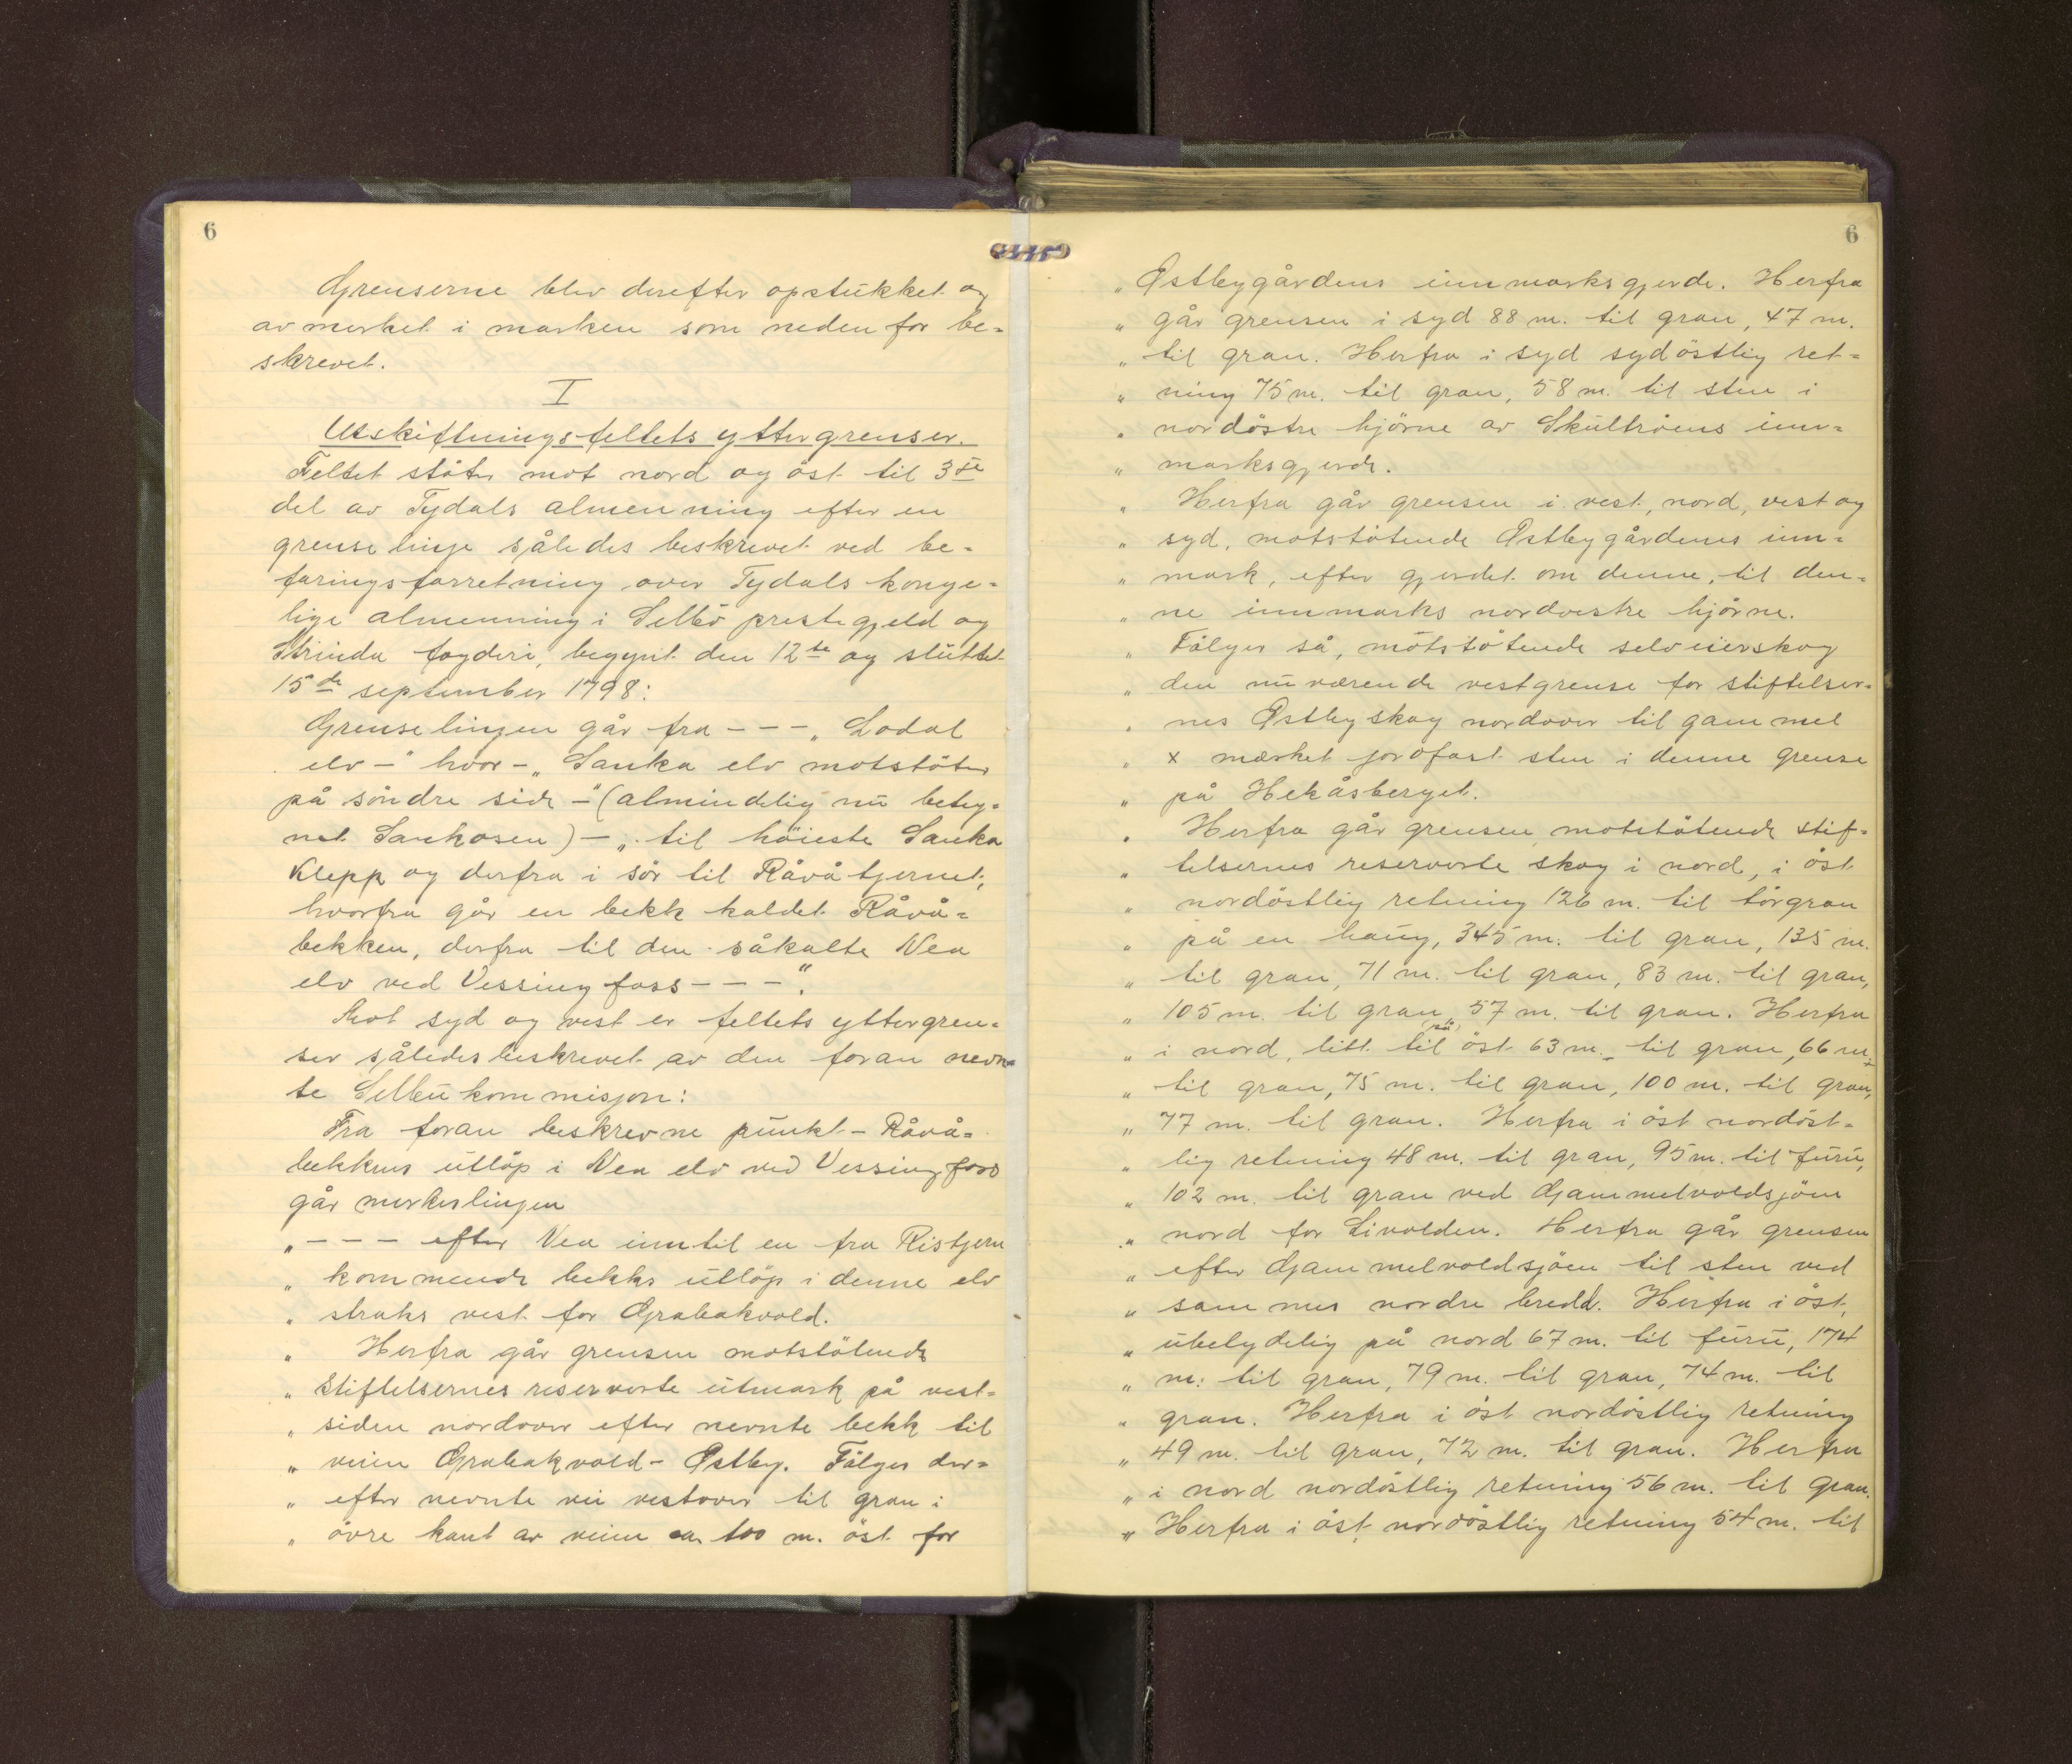 6
Grenserne blev derefter opstukket og
avmerket i marken som nedenfor be-
skrevet.
I
Utskiftningsfeltets yttergrenser.
Feltet støter mot nord og öst til 3die
del av Tydals almenning efter en
grenselinje således beskrevet ved be-
faringsforretning over Tydals konge-
lige almenning i Selbö prestegjeld og
Strinda fogderi, begynt den 12te og sluttet
15de september 1798:
Grenselinjen går fra - - - „Lødøl
elv -" hvor - „Sanka elv motstöter
på söndre side -" (almindelig nu beteg-
net Sankaosen) - „til höieste Sanka
Klepp og derfra i sör til Råvåtjernet,
hvorfra går en bekk kaldet Råvå-
bekken, derfra til den såkalte Nea
elv ved Vessingfoss - - -".
Mot syd og vest er feltets yttergren-
ser således beskrevet av den foran nevn-
te Selbukommisjon:
Fra foran beskrevne punkt - Råvå-
bekkens utlöp i Nea elv ved Vessingfoss
går merkeslinjen
„ - - - efter Nea inntil en fra Ristjern
„ kommende bekks utlöp i denne elv
„ straks vest for Grabakvold.
„ Herfra går grensen motstötende
„ Stiftelsernes reserverte utmark på vest-
„ siden nordover efter nevnte bekk til
„ veien Grabakvold - Østby. Fölger der-
„ efter nevnte vei vestover til gran i
„ övre kant av veien ca 100 m. öst for
6
„ Østbygårdens innmarksgjerde. Herfra
„ går grensen i syd 88 m. til gran, 47 m.
„ til gran. Herfra i syd sydöstlig ret-
„ ning 75 m. til gran, 58 m. til sten i
„ nordöstre hjörne av Skultröens inn-
„ marksgjerde.
„ Herfra går grensen i vest, nord, vest og
„ syd, motstötende Østbygårdenes inn-
„ mark, efter gjerdet om denne, til den-
„ ne innmarks nordvestre hjörne.
„ Fölger så, motstötende selveierskog
„ den nuværende vestgrense for stiftelser-
„ nes Østbyskog nordover til gammel
„ x merket jordfast sten i denne grense
„ på Hekåsberget.
„ Herfra går grensen motstötende stif-
„ telsernes reserverte skog i nord, i öst
„ nordöstlig retning 126 m. til törgran
„ på en haug, 345 m. til gran, 135 m.
„ til gran, 71 m. til gran, 83 m. til gran,
„ 105 m. til gran, 57 m. til gran. Herfra
„ i nord, litt til (på) öst 63 m. til gran, 66 m.
„ til gran, 75 m. til gran, 100 m. til gran,
„ 77 m. til gran. Herfra i öst nordöst-
„ lig retning 48 m. til gran, 95 m. til furu,
„ 102 m. til gran ved Gammelvoldsjöen
„ nord for Livolden. Herfra går grensen
„ efter Gammelvoldsjöen til sten ved
„ sammes nordre bredd. Herfra i öst,
„ ubetydelig på nord 67 m. til furu, 174
„ m. til gran, 79 m. til gran, 74 m. til
„ gran. Herfra i öst nordöstlig retning
„ 49 m. til gran, 72 m. til gran. Herfra
„ i nord nordöstlig retning 56 m. til gran.
„ Herfra i öst nordöstlig retning 54 m. til